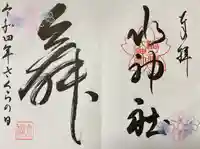 奉拝
水神社
舞
令和四年さくらの日